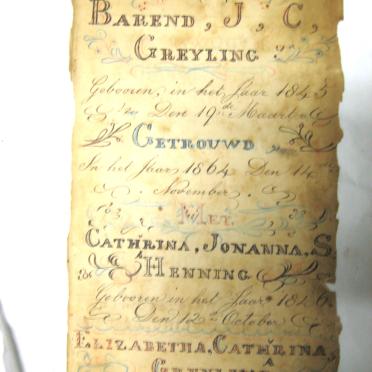 BAREND, J, C,
GREYLING
Gebooren, in het Jaar 1843
Den 19de Maart
GETROUWD
In het Jaar 1864 Den 14de
November
MET
CATHRINA, JONANNA, S.
HENNING
Gebooren in het Jaar 1846
Den 12de October
ELIZABETHA, CATHRINA,